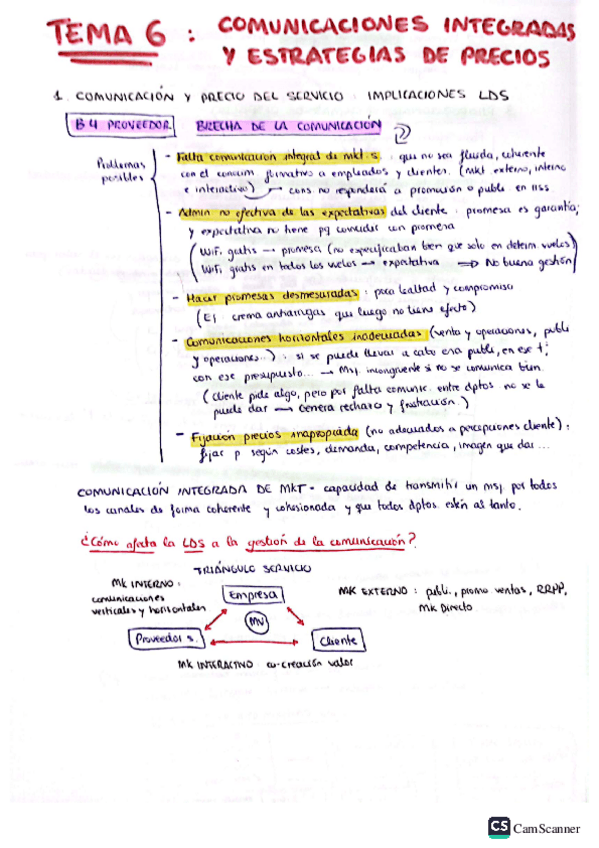 TEMA 6 : COMUNICACIONES INTEGRADAS
Y ESTRATEGIAS DE PRECIOS
1. COMUNICACIÓN Y PRECIO DEL SERVICIO : IMPLICACIONES LDS
B4 PROVEEDOR BRECHA DE LA COMUNICACIÓN
Problemas
posibles
- Falta comunicación integral de mkt s. : que no sea fluida, coherente
con el concum formativo a empleados y clientes. (mkt externo, interno
e interactivo) → cons no responderá a promoción o public en
- Admin no efectiva de las expectativas del cliente : promesa es garantía;
y expectativa no tiene pq coincidir con promesa
(Wifi gratis → promesa (no especificaban bien que solo en determ vuelos)
Wifi gratis en todos los vuelos → expectativa ⇒ No buena gestión)
- Hacer promesas desmesuradas : poca lealtad y compromiso
(EJ crema antiarrugas que luego no tiene efecto)
- Comunicaciones horizontales inadecuadas (venta y operaciones, publi
y operaciones...) : si se puede llevar a cabo esa publi, en ese t;
con ese presupuesto... → Msj. incongruente si no se comunica bien.
(Cliente pide algo, pero por falta comunic. entre dptos no se le
puede dar → Genera rechazo y frustración.)
- Fijación precios inapropiada (no adecuados a percepciones cliente) :
fijar p según costes, demanda, competencia, imagen que dar ...
COMUNICACIÓN INTEGRADA DE MKT - capacidad de transmitir un msj. por todos
los canales de forma coherente y cohesionada y que todos dptos estén al tanto.
¿Cómo afecta la LDS a la gestión de la comunicación?
TRIÁNGULO SERVICIO
MK INTERNO :
comunicaciones
verticales y horizontales
Empresa
MK EXTERNO : publi., promo ventas, RRPP,
MK Directo
MV
Proveedor s.
Cliente
MK INTERACTIVO : co-creación valor
CS CamScanner